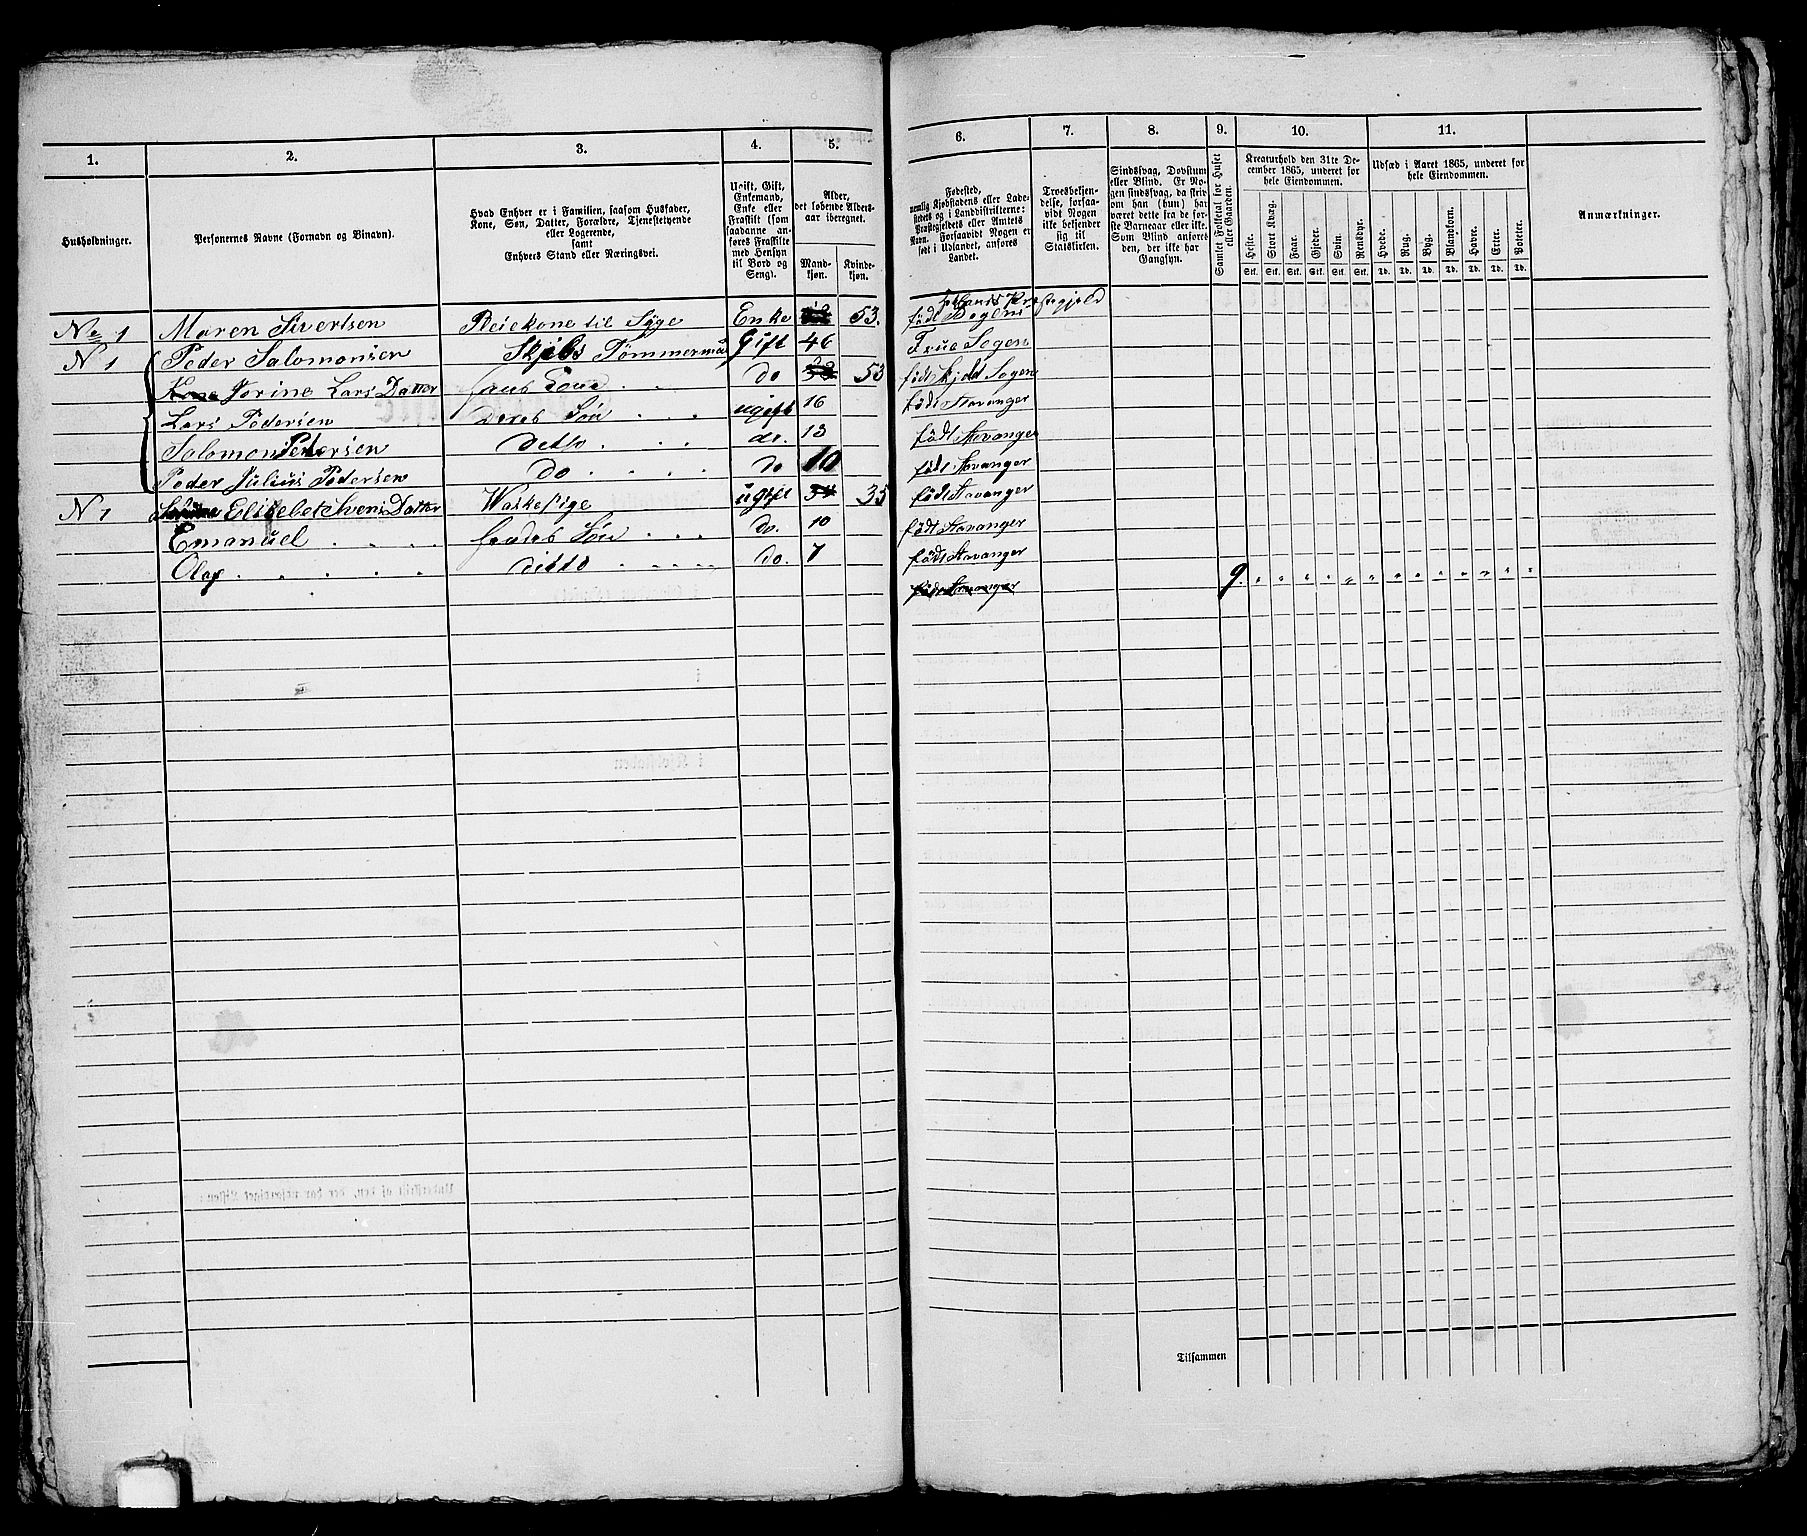 1. 2. 3. 4. 5. 6. 7. 8. 9. 10. 11.
Husholdninger.
Personernes Navne (Fornavn og Binavn).
Hvad Enhver er i Familien, saasom Husfader,
Kone, Søn, Datter, Forældre, Tjenestetyende
eller Logerende,
samt
Enhvers Stand eller Næringsvei.
Ugift, Gift,
Enkemand,
Enke eller
Fraskilt (som
saadanne an-
føres Fraskilte
med Hensyn
til Bord og
Seng).
Alder,
det løbende Alders-
aar iberegnet.
Mand-
kjøn.
Kvinde-
kjøn.
Fødested,
nemlig Kjøbstadens eller Lade-
stedets og i Landdistrikterne:
Præstegjeldets eller Amtets
Navn. Forsaavidt Nogen er
født i Udlandet, anføres
Landet.
Troesbekjen-
delse, forsaa-
vidt Nogen
ikke bekjender
sig til
Statskirken.
Sindssvag, Døvstum
eller Blind. Er No-
gen sindssvag, da skriv
om han (hun) har
været dette fra de før-
ste Barneaar eller ikke.
Som Blind anføres
den, der ikke har
Gangsyn.
Samlet Folketal for Huset
eller Gaarden.
Kreaturhold den 31te De-
cember 1865, underet for
hele Eiendommen.
Heste. Stort Kvæg. Faar. Gjeder. Svin. Rensdyr.
Stk. Stk. Stk. Stk. Stk. Stk.
Udsæd i Aaret 1865, underet for
hele Eiendommen.
Hvede. Rug. Byg. Blandkorn. Havre. Erter. Poteter.
Td. Td. Td. Td. Td. Td. Td.
Anmærkninger.
No 1 Maren Sivertsen Pleiekone til Syge Enke 53. født
N 1 Peder Salomonsen Skibs Tømmermand Gift 46 Frue Sogen
Kone Torine Lars Datter hans Kone do 53 født Sogen
Lars Pedersen Deres Søn ugift 16 født Stavanger
Salomon Pedersen Ditto do. 13 født Stavanger
Peder Julius Pedersen Do do 10 født Stavanger
N 1 Elisebet Datter Vaskepige ugift 34 35 født Stavanger
Emanuel Søn do. 10 født Stavanger
Olaf ditto do. 7 født Stavanger
født Stavanger 9.
Tilsammen